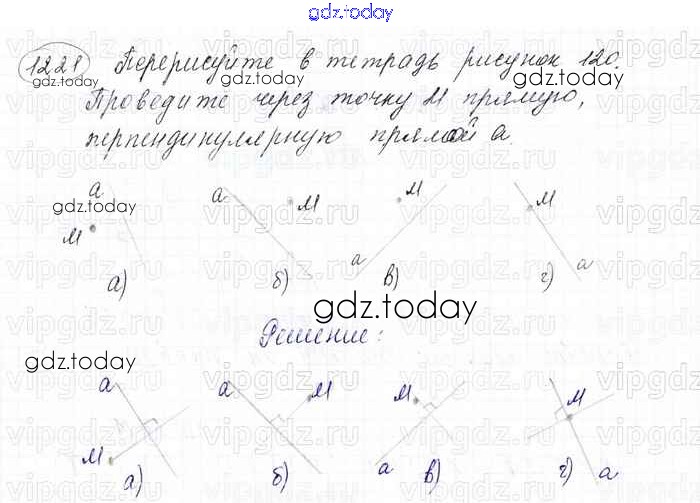 gdz.today
1221 Перерисуйте в тетрадь рисунок 120.
gdz.today gdz.today
Проведите через точку M прямую,
перпендикулярную прямой a.
vipgdz.ru vipgdz.ru vipgdz.ru vipgdz.ru
a a M M M
gdz.today
M a a
а) б) в) г)
gdz.today
Решение:
gdz.today
a a M M M
M a a
а) б) в) г)